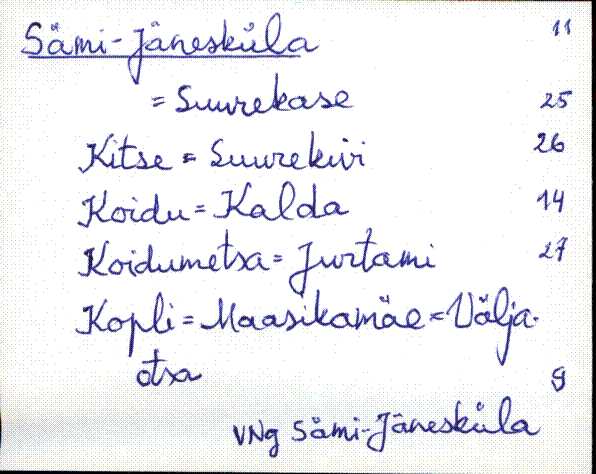 Sämi-Jänesküla 11
= Suurekase 25
Kitse = Suurekivi 26
Koidu = Kalda 14
Koidumetsa = Jurtami 27
Kopli = Maasikamäe = Välja-
otsa 9
VNg Sämi-Jänesküla